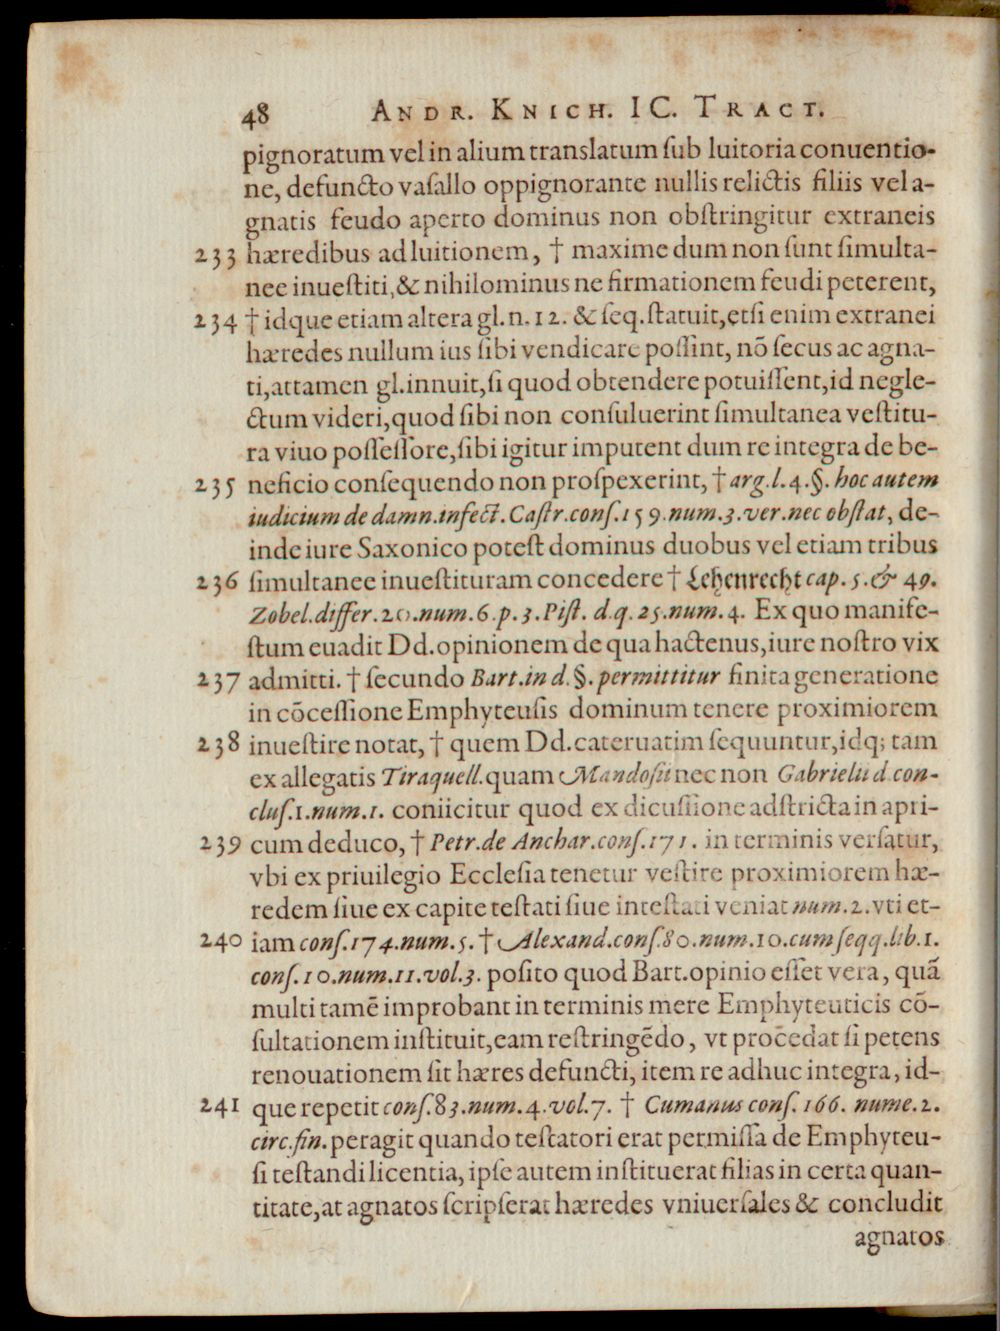 48 ANDR. KNICH. IC. TRACT.
pignoratum vel in alium translatum ſub luitoria conuentio-
ne, defuncto vaſallo oppignorante nullis relictis filiis vel a-
gnatis feudo aperto dominus non obſtringitur extraneis
233 hæredibus ad luitionem, † maxime dum non ſunt ſimulta-
nee inueſtiti, & nihilominus ne firmationem feudi peterent,
234 † idque etiam altera gl. n. 12. & ſeq. ſtatuit, etſi enim extranei
hæredes nullum ius ſibi vendicare poſſint, nō ſecus ac agna-
ti, attamen gl. innuit, ſi quod obtendere potuiſſent, id negle-
ctum videri, quod ſibi non conſuluerint ſimultanea veſtitu-
ra viuo poſſeſſore, ſibi igitur imputent dum re integra de be-
235 neficio conſequendo non proſpexerint, † arg. l. 4. §. hoc autem
iudicium de damn. infect. Caſtr. conſ. 159. num. 3. ver. nec obſtat, de-
inde iure Saxonico poteſt dominus duobus vel etiam tribus
236 ſimultanee inueſtituram concedere † Lehenrecht cap. 5. & 49.
Zobel. differ. 20. num. 6. p. 3. Piſt. d. q. 25. num. 4. Ex quo manife-
ſtum euadit Dd. opinionem de qua hactenus, iure noſtro vix
237 admitti. † ſecundo Bart. in d. §. permittitur finita generatione
in cōceſſione Emphyteuſis dominum tenere proximiorem
238 inueſtire notat, † quem Dd. cateruatim ſequuntur, idq; tam
ex allegatis Tiraquell. quam Mandoſii nec non Gabrielii d. con-
cluſ. 1. num. 1. coniicitur quod ex dicuſſione adſtricta in apri-
239 cum deduco, † Petr. de Anchar. conſ. 171. in terminis verſatur,
vbi ex priuilegio Eccleſia tenetur veſtire proximiorem hæ-
redem ſiue ex capite teſtati ſiue inteſtati veniat num. 2. vti et-
240 iam conſ. 174. num. 5. † Alexand. conſ. 80. num. 10. cum ſeqq. lib. 1.
conſ. 10. num. 11. vol. 3. poſito quod Bart. opinio eſſet vera, quã
multi tamē improbant in terminis mere Emphyteuticis cō-
ſultationem inſtituit, eam reſtringēdo, vt procedat ſi petens
renouationem ſit hæres defuncti, item re adhuc integra, id-
241 que repetit conſ. 83. num. 4. vol. 7. † Cumanus conſ. 166. nume. 2.
circ. fin. peragit quando teſtatori erat permiſſa de Emphyteu-
ſi teſtandi licentia, ipſe autem inſtituerat filias in certa quan-
titate, at agnatos ſcripſerat hæredes vniuerſales & concludit
agnatos